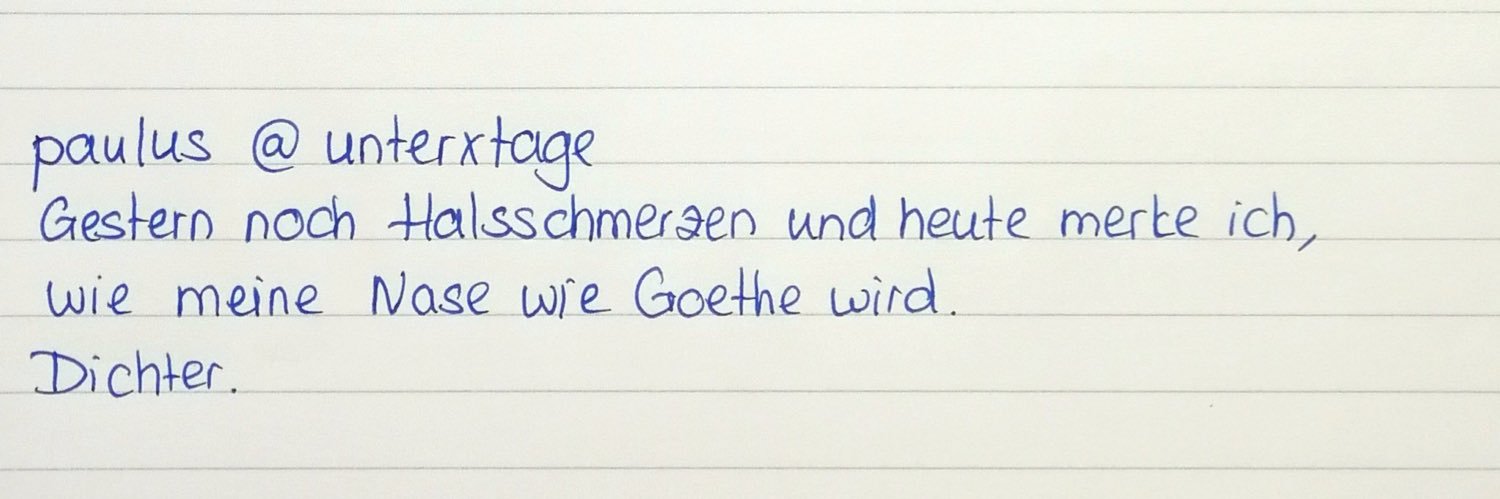 paulus @ unterxtage
Gestern noch Halsschmerzen und heute merke ich,
wie meine Nase wie Goethe wird.
Dichter.